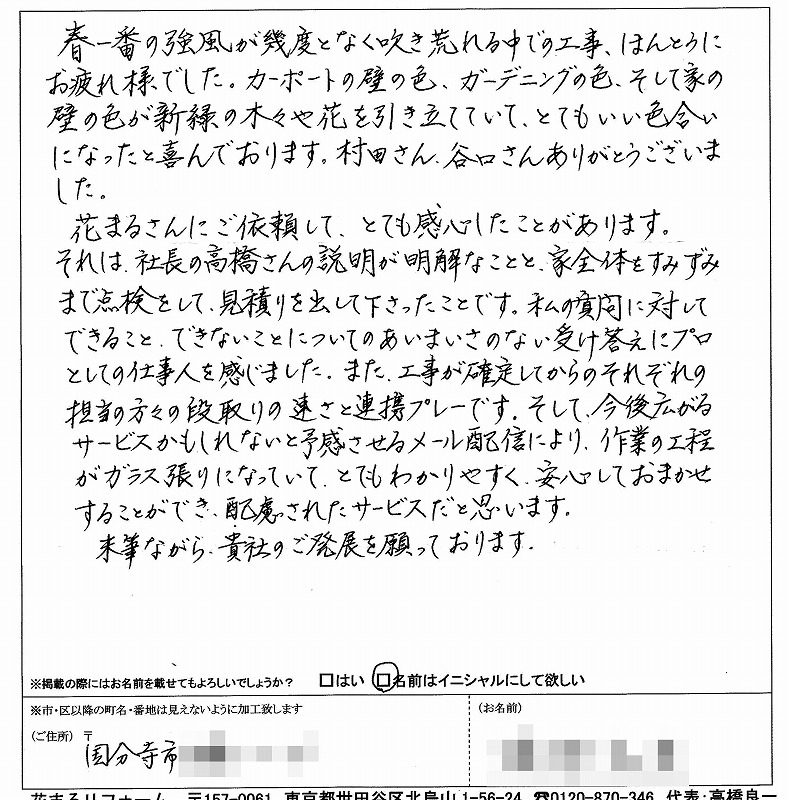 春一番の強風が幾度となく吹き荒れる中での工事、ほんとうに
お疲れ様でした。カーポートの壁の色、ガーデニングの色、そして家の
壁の色が新緑の木々や花を引き立てていて、とてもいい色合い
になったと喜んでおります。村田さん、谷口さんありがとうございま
した。
花まるさんにご依頼して、とても感心したことがあります。
それは、社長の高橋さんの説明が明解なことと、家全体をすみずみ
まで点検をして、見積りを出して下さったことです。私の質問に対して
できること、できないことについてのあいまいさのない受け答えにプロ
としての仕事人を感じました。また、工事が確定してからのそれぞれの
担当の方々の段取りの速さと連携プレーです。そして、今後広がる
サービスかもしれないと予感させるメール配信により、作業の工程
がガラス張りになっていて、とてもわかりやすく、安心しておまかせ
することができ、配慮されたサービスだと思います。
末筆ながら、貴社のご発展を願っております。
※掲載の際にはお名前を載せてもよろしいでしょうか? □はい □名前はイニシャルにして欲しい
※市・区以降の町名・番地は見えないように加工致します
(お名前)
(ご住所) 〒
国分寺市
花まるリフォーム 〒157-0061 東京都世田谷区北烏山1-56-24 ☎0120-870-346 代表:高橋良一